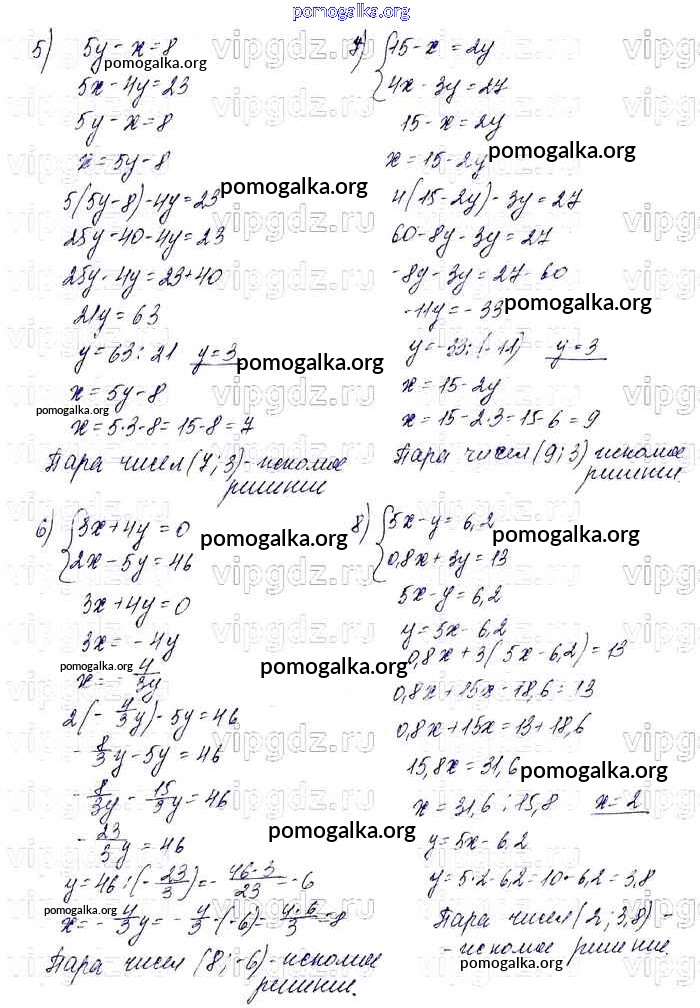 pomogalka.org
5) 5y - x = 8
pomogalka.org
5x - 4y = 23
5y - x = 8
x = 5y - 8
5(5y - 8) - 4y = 23
pomogalka.org
25y - 40 - 4y = 23
25y - 4y = 23 + 40
21y = 63
y = 63 : 21 y = 3
pomogalka.org
x = 5y - 8
pomogalka.org
x = 5·3 - 8 = 15 - 8 = 7
Пара чисел (7; 3) - искомое
решение
6) { 3x + 4y = 0
pomogalka.org
2x - 5y = 46
3x + 4y = 0
3x = - 4y
pomogalka.org
x = - 4/3y
pomogalka.org
2(- 4/3y) - 5y = 46
- 8/3y - 5y = 46
- 8/3y - 15/3y = 46
- 23/3y = 46
pomogalka.org
y = 46 : (- 23/3) = - 46·3/23 = -6
pomogalka.org
x = - 4/3y = - 4/3·(-6) = 4·6/3 = 8
Пара чисел (8; -6) - искомое
решение.
7) { 15 - x = 2y
4x - 3y = 27
15 - x = 2y
pomogalka.org
x = 15 - 2y
4(15 - 2y) - 3y = 27
60 - 8y - 3y = 27
-8y - 3y = 27 - 60
-11y = - 33
pomogalka.org
y = -33 : (-11) y = 3
x = 15 - 2y
x = 15 - 2·3 = 15 - 6 = 9
Пара чисел (9; 3) искомое
решение.
8) { 5x - y = 6,2
pomogalka.org
0,8x + 3y = 13
5x - y = 6,2
y = 5x - 6,2
0,8x + 3(5x - 6,2) = 13
0,8x + 15x - 18,6 = 13
0,8x + 15x = 13 + 18,6
15,8x = 31,6
pomogalka.org
x = 31,6 : 15,8 x = 2
y = 5x - 6,2
y = 5·2 - 6,2 = 10 - 6,2 = 3,8
Пара чисел (2; 3,8) -
- искомое решение.
pomogalka.org
vipgdz.ru